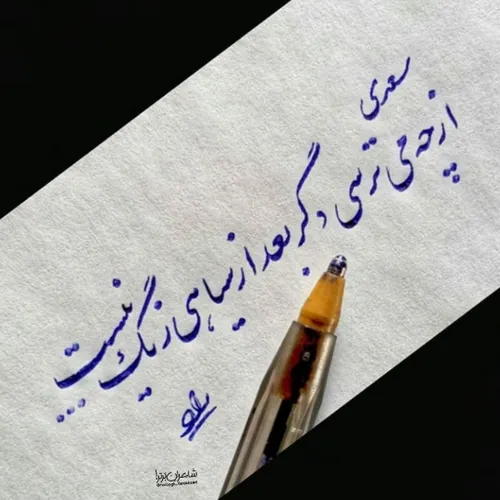 سعدی
از چه می ترسی دگر بعد از سیاهی رنگ نیست
شاعران برتر